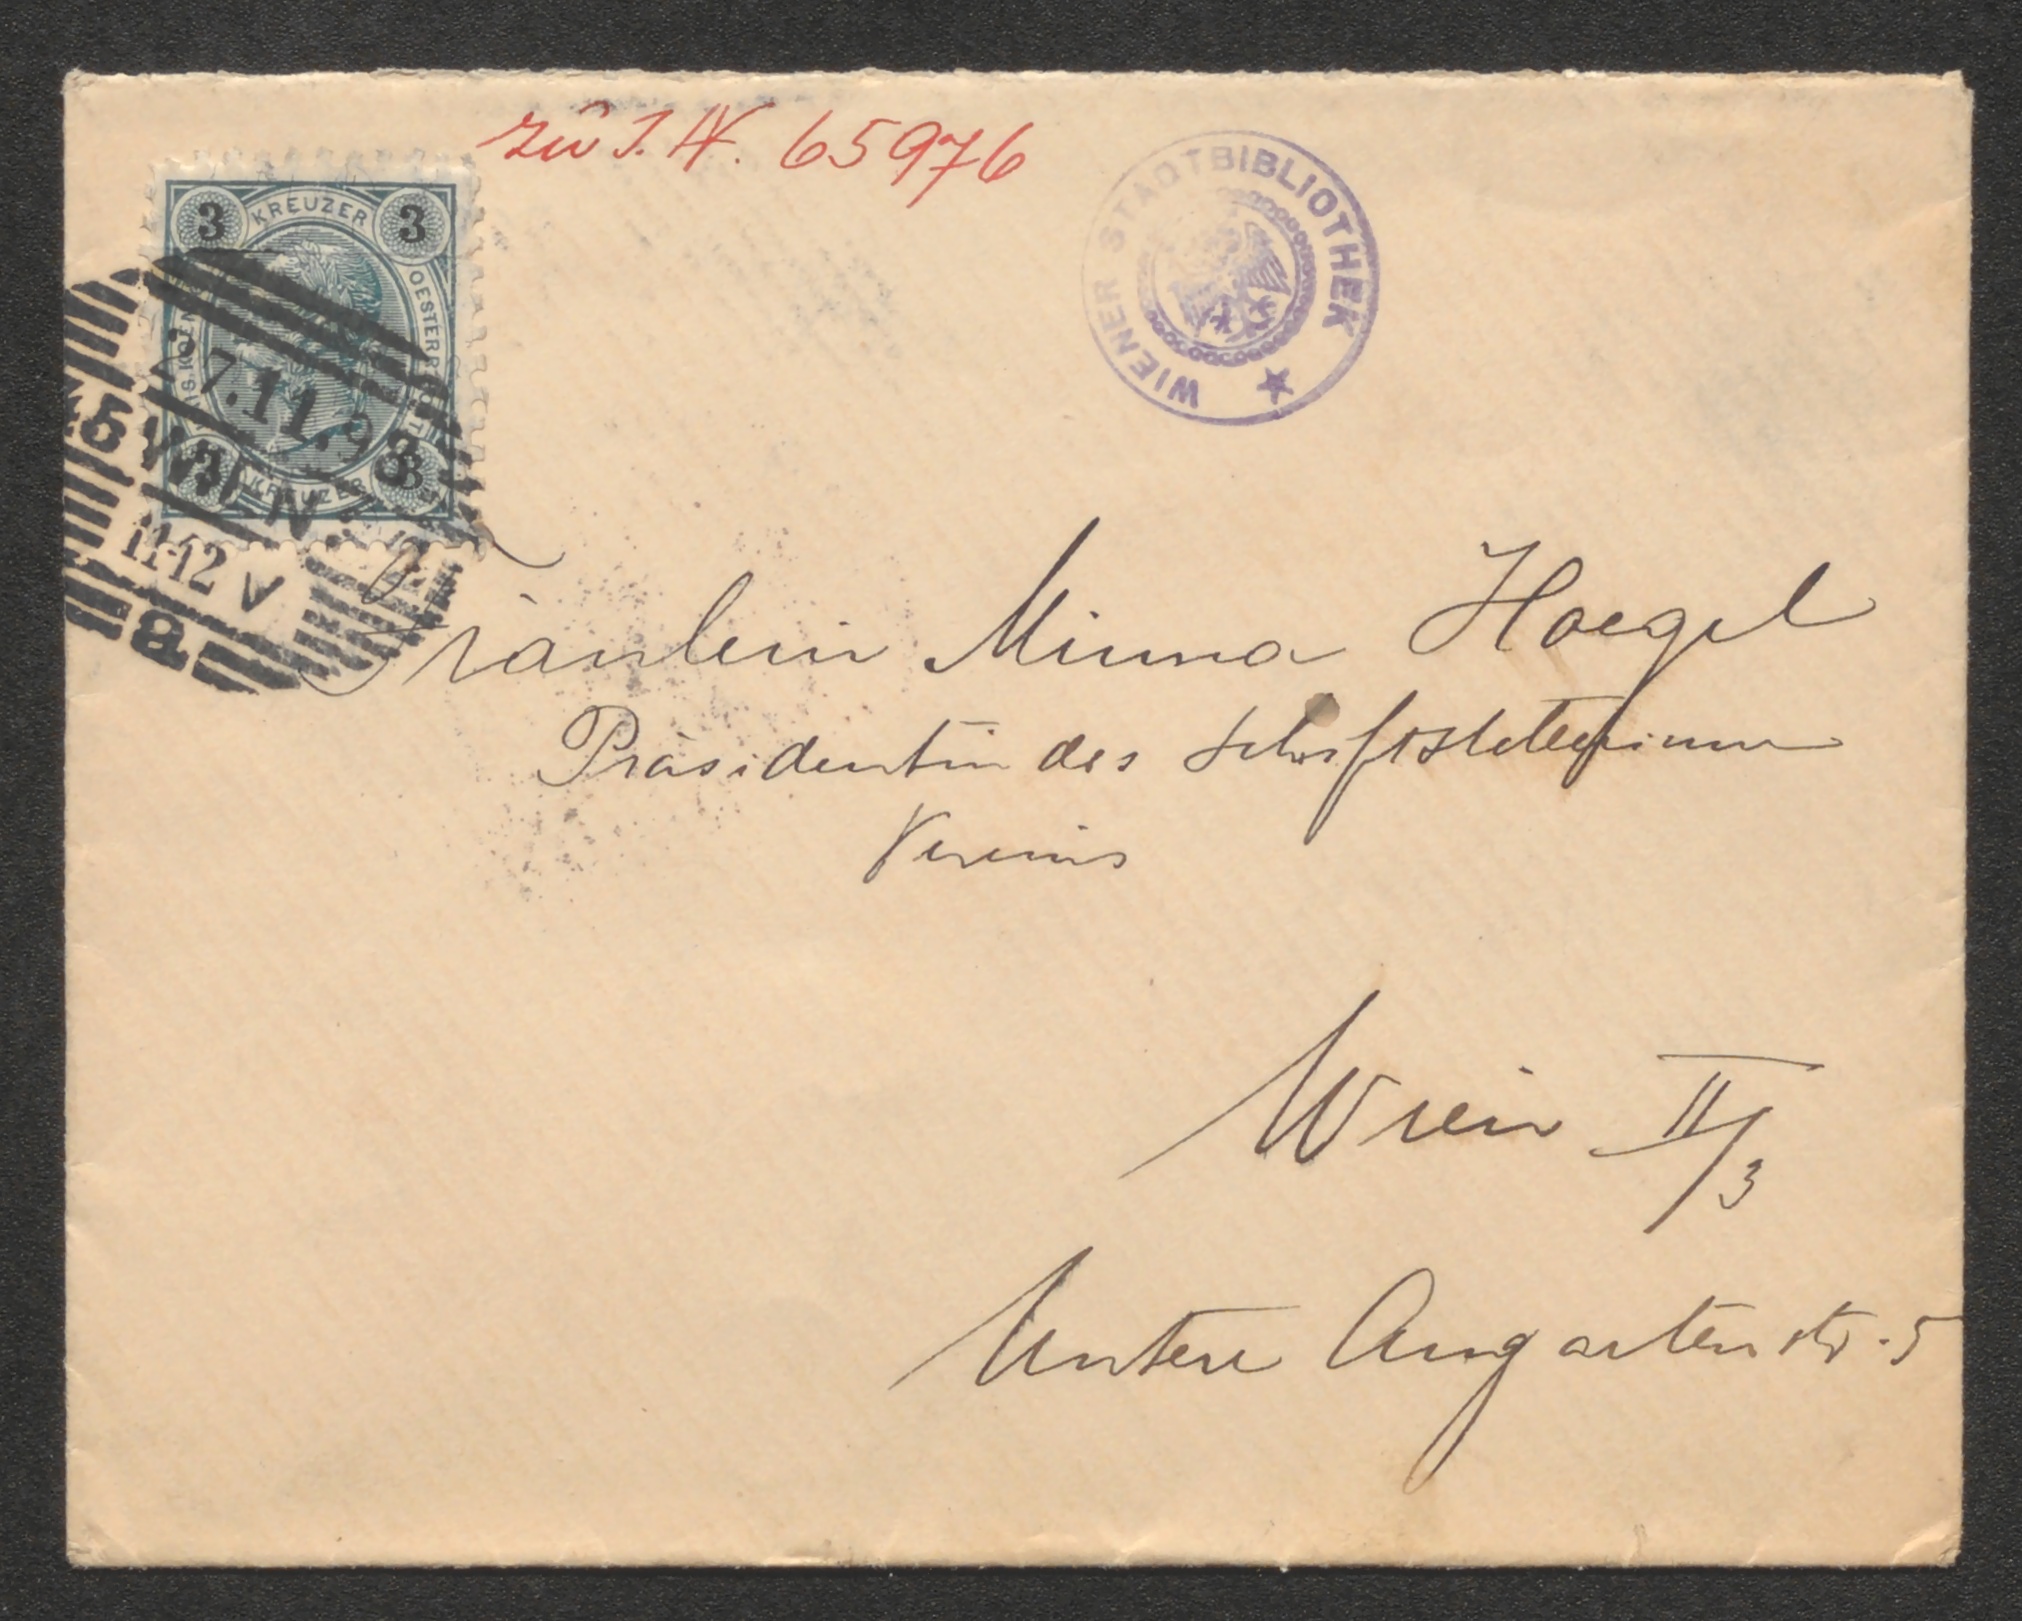 zu J. N. 65976
WIENER STADTBIBLIOTHEK
3 KREUZER 3
3 KREUZER 3
7.11.98
WIEN
11-12 V
Fräulein Minna Hoegel
Präsidentin des Schriftstellerinnen
Vereins
Wien II/3
Untere Augartenstr. 5